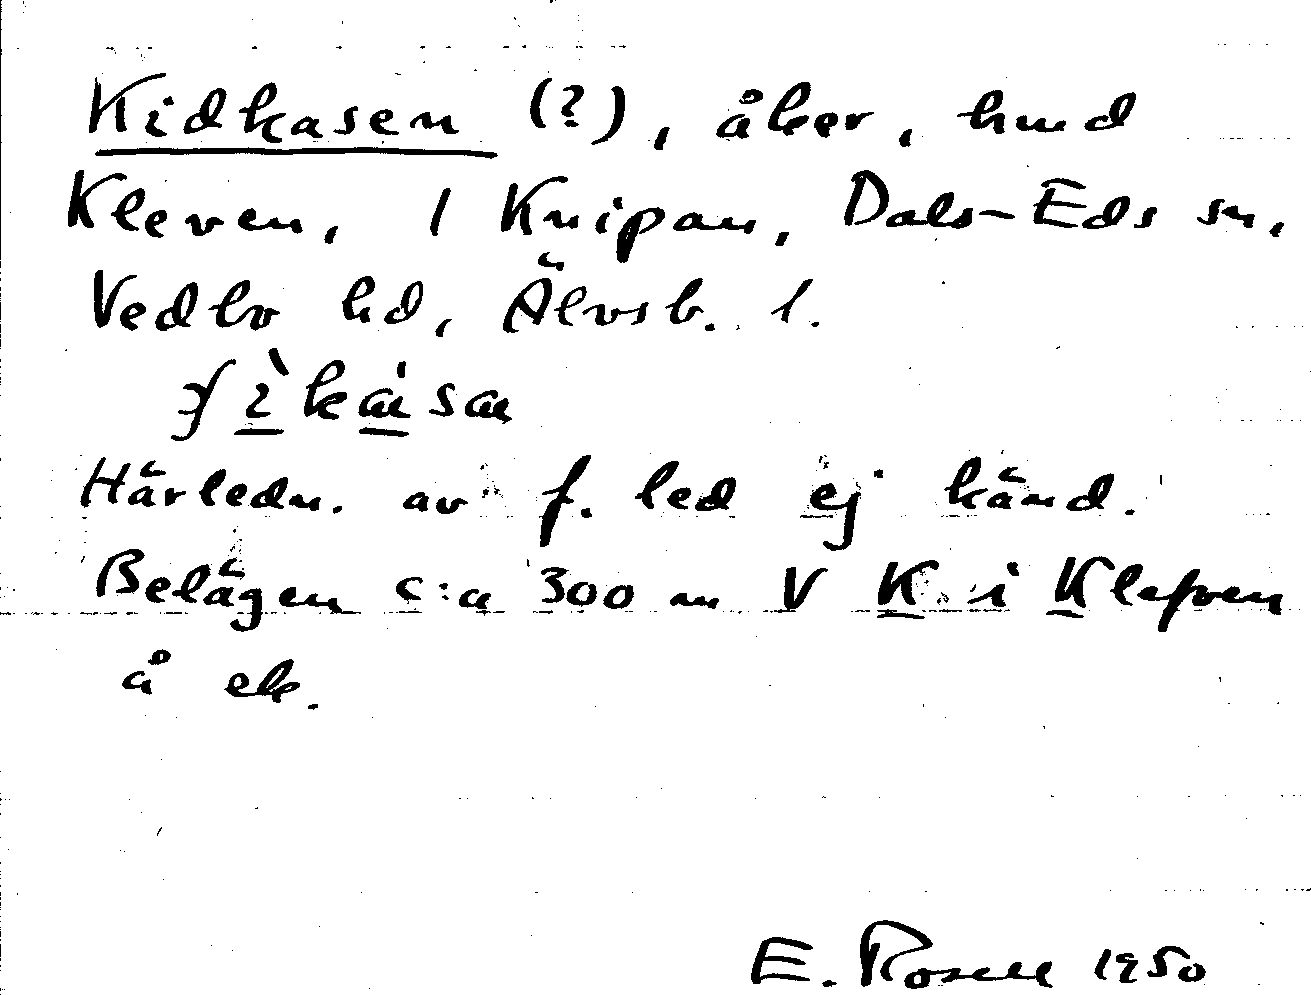 Kidkasen (?), åker, hmd
Kleven, 1 Knipan, Dals-Eds sn,
Vedbo hd, Älvsb. l.
Härledn. av f. led ej känd.
Belägen c:a 300 m V K i Klefven
å ek.
E. Rosell 1950